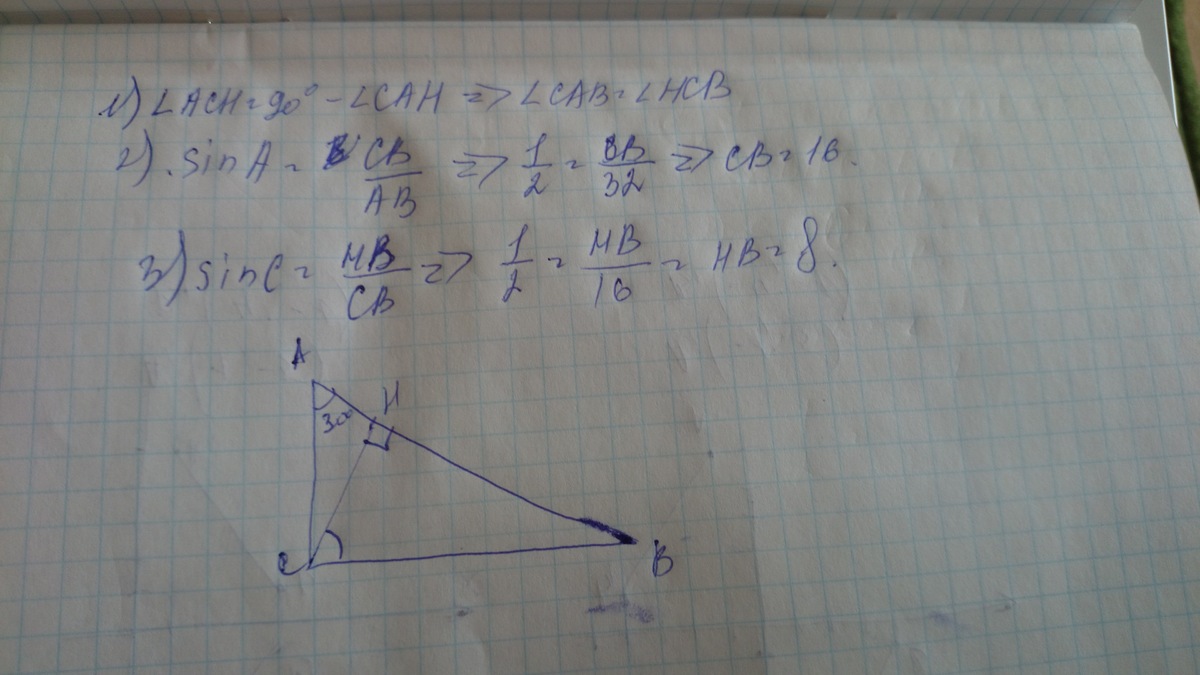 1) ∠ACH = 90° - ∠CAH => ∠CAB = ∠HCB
2) sin A = CB/AB => 1/2 = CB/32 => CB = 16.
3) sin C = HB/CB => 1/2 = HB/16 = HB = 8.
A
H
30°
C
B